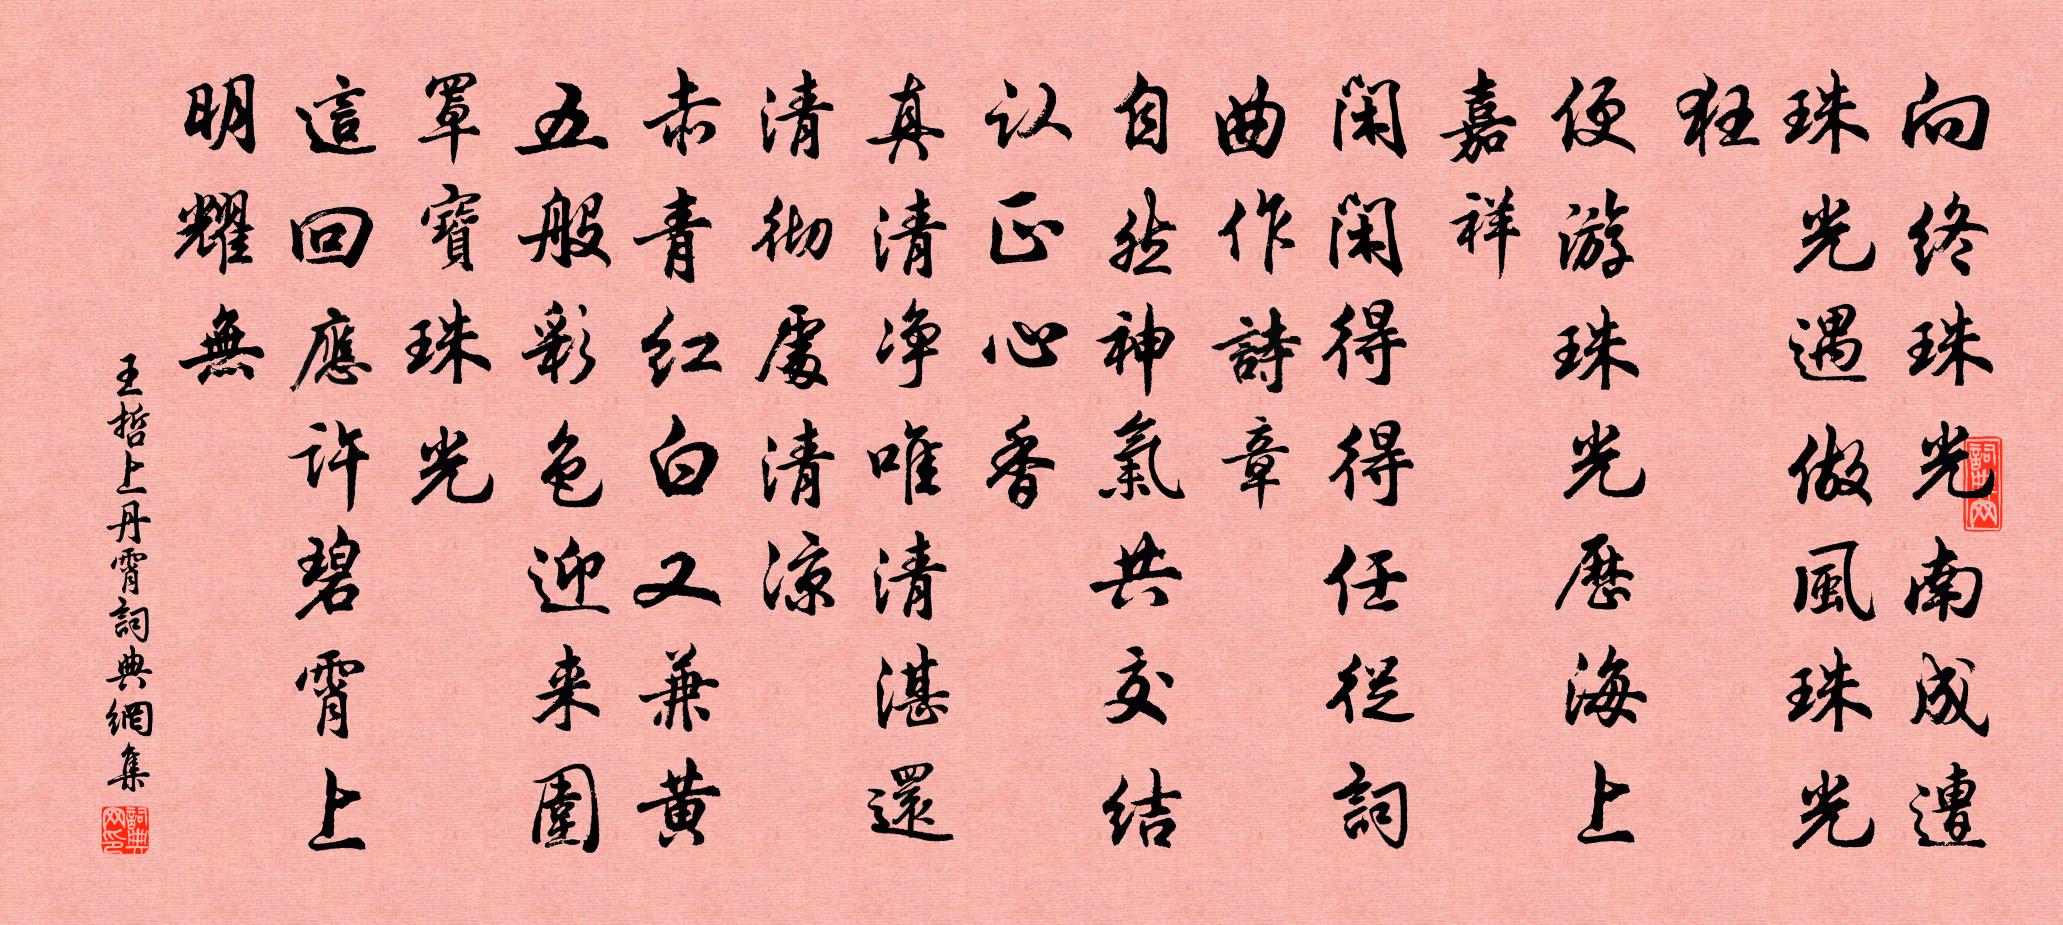 向终珠光南成遭
珠光遇做風珠光
狂
便游珠光歷海上
嘉祥
閑閑得得任從詞
曲作詩章
自然神氣共交结
认正心香
真清清净唯清湛還
清彻處清凉
赤青红白又兼黄
五般彩色迎来圍
罩寶珠光
這回應许碧霄上
明耀無
王哲上丹霄詞典網集
詞典网
詞典网印